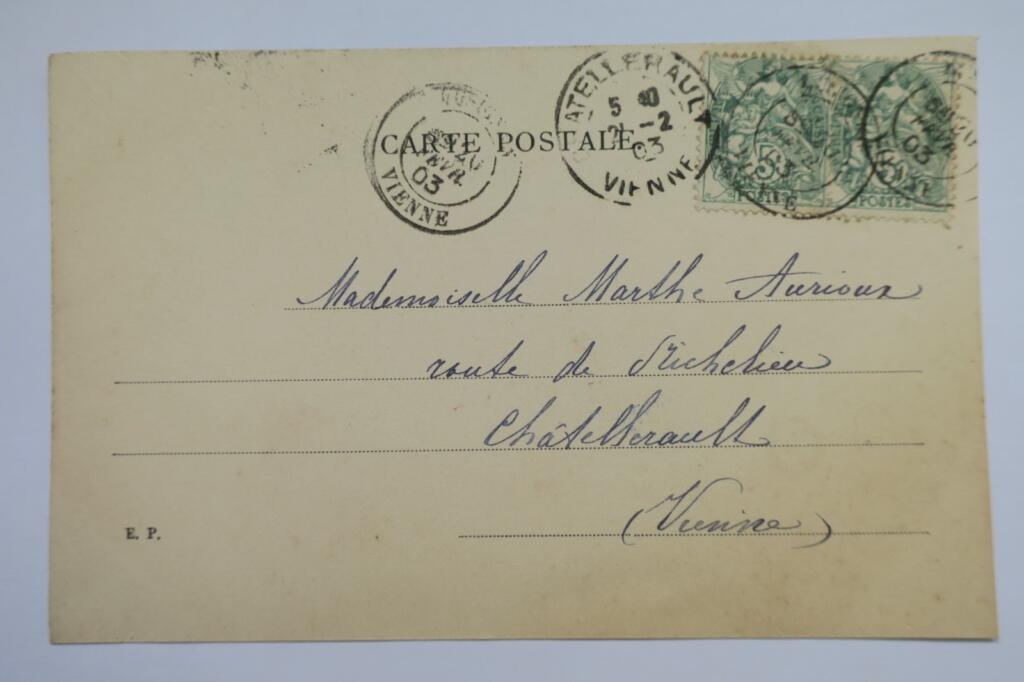 CARTE POSTALE
FEVR.
03
VIENNE
CHATELLERAULT
5 40
2 -2
03
VIENNE
5
POSTES
5
POSTES
03
Mademoiselle Marthe Aurioux
route de Richelieu
Châtellerault
(Vienne)
E. P.